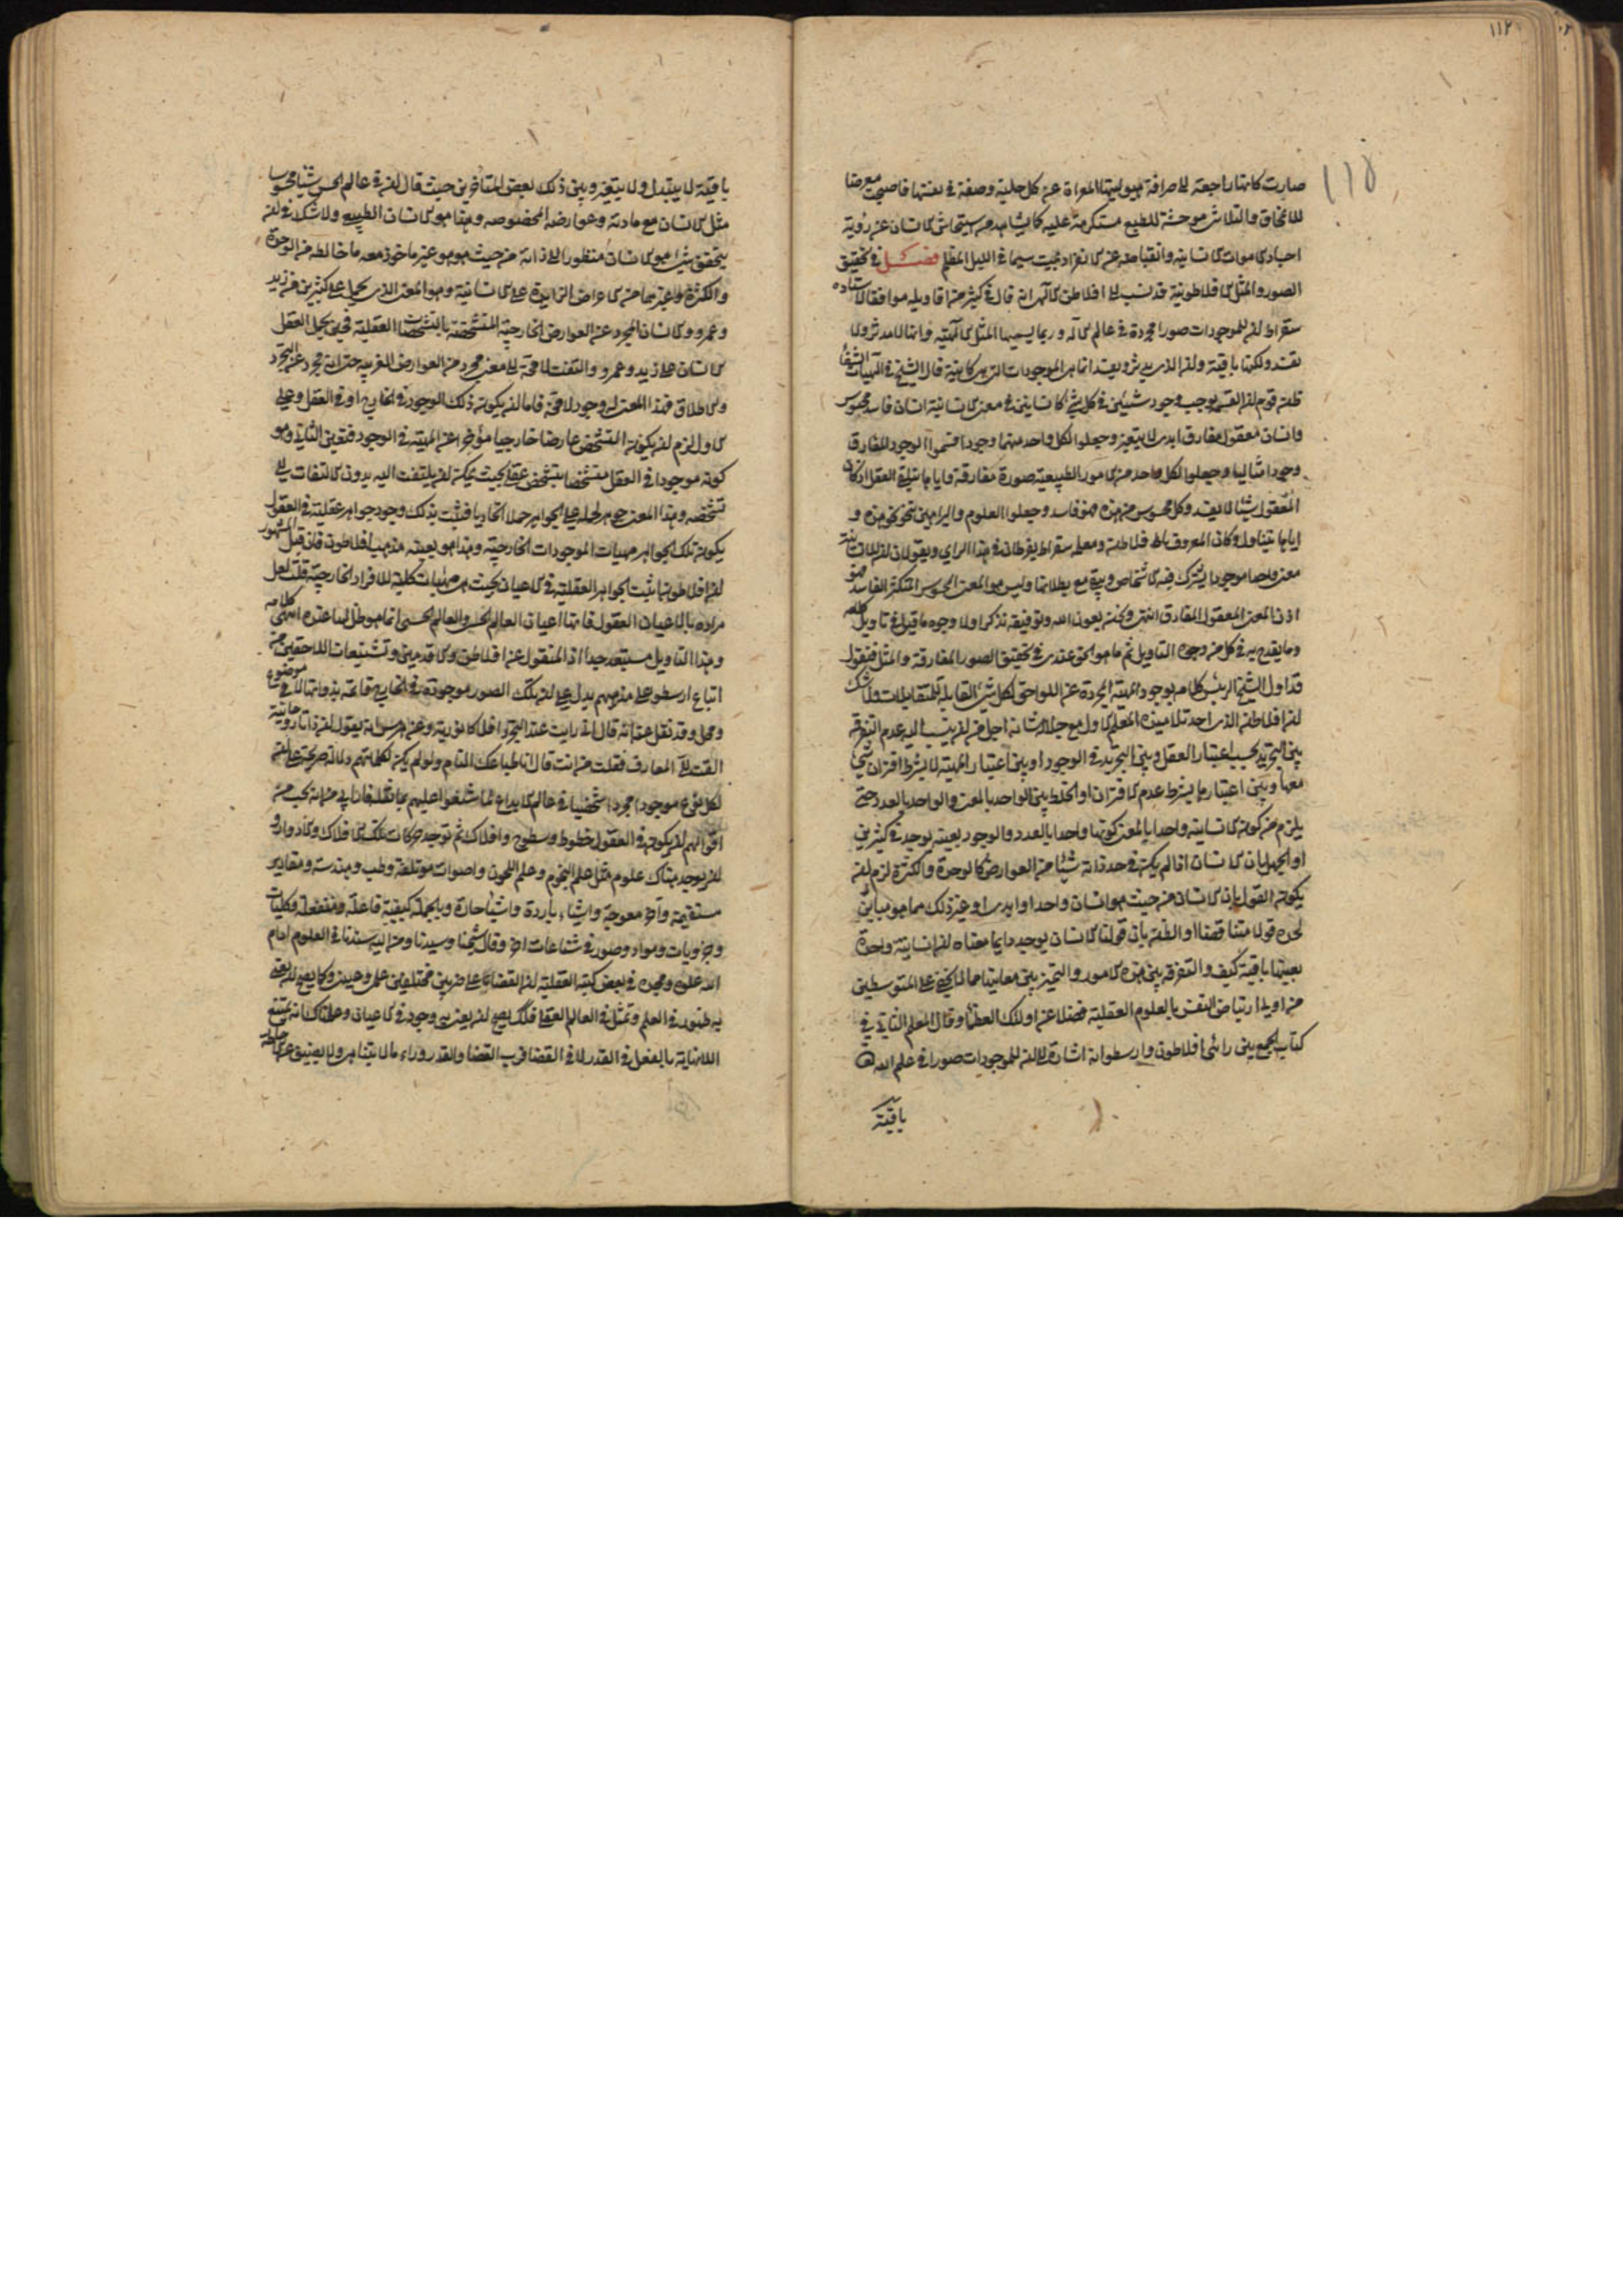 ١١٢
١١٥
صارت كانها راجعة الى صرافة هيوليتها المعراة عن كل حلية وصفة فى نفسها فاصبحت معرضا
للانمحاق والتلاشى موحشة للطبع مستكرهة عليه كما يشاهد من استيحاش الانسان عن رؤية
اجساد الاموات الانسانية وانقباضه عن الانفراد بميت سيما فى الليل المظلم فصل فى تحقيق
الصور والمثل الافلاطونية قد نسب الى افلاطن الالهى انه قال فى كثير من اقاويله موافقا لاستاده
سقراط ان للموجودات صورا مجردة فى عالم الاله وربما يسميها المثل الالهية وانها لا تدثر ولا
تفسد ولكنها باقية وان الذى يدثر ويفسد انما هى الموجودات التى هى كاينة قال الشيخ فى الهيات الشفا
ظن قوم ان القسمة يوجب وجود شيئين فى كل شئ كانسانين فى معنى الانسانية انسان فاسد محسوس
وانسان معقول مفارق ابدى لا يتغير وجعلوا لكل واحد منهما وجودا فسموا الوجود المفارق
وجودا مثاليا وجعلوا لكل واحد من الامور الطبيعية صورة مفارقة واياها يتلقى العقل اذ كان
المعقول شيئا لا يفسد وكل محسوس من هذه فهو فاسد وجعلوا العلوم والبراهين تنحو نحو هذه و
اياها يتناول وكان المعروف بافلاطن ومعلمه سقراط يفرطان فى هذا الراى ويقولان ان للانسانية
معنى واحدا موجودا يشترك فيه الاشخاص ويبقى مع بطلانها وليس هو المعنى المحسوس المتكثر الفاسد فهو
اذن المعنى المعقول المفارق انتهى ونحن بعون الله وتوفيقه نذكر اولا وجوه ما قيل فى تاويل كلامه
وما يقدح به فى كل من وجوه التاويل ثم ما هو الحق عندى فى تحقيق الصور المفارقة والمثل فنقول
قد اول الشيخ الرئيس كلامه بوجود الماهية المجردة عن اللواحق لكل شئ القابلة للمتقابلات ولا شك
ان افلاطن الذى احد تلاميذه المعلم الاول مع جلالة شانه اجل من ان ينسب اليه عدم التفرقة
بين التجريد بحسب اعتبار العقل وبين التجريد فى الوجود او بين اعتبار الماهية لا بشرط اقتران شئ
معها وبين اعتبارها بشرط عدم الاقتران او الخلط بين الواحد بالمعنى والواحد بالعدد حتى
يلزم من كون الانسانية واحدا بالمعنى كونها واحدا بالعدد والوجود بعينه يوجد فى كثيرين
او الجهل بان الانسان اذا لم يكن فى حد ذاته شيئا من العوارض كالوحدة والكثرة لزم ان
يكون القول بان الانسان من حيث هو انسان واحد او ابدى او غير ذلك مما هو مباين
لحده قولا متناقضا او الظن بان قولنا الانسان يوجد دايما معناه ان انسانية واحدة
بعينها باقية كيف والتفرقة بين هذه الامور والتميز بين معانيها مما لا يخفى على المتوسطين
من اولى ارتياض النفس بالعلوم العقلية فضلا عن اولئك العظماء وقال المعلم الثانى فى
كتاب الجمع بين رائى افلاطون وارسطو انه اشارة الى ان للموجودات صورا فى علم الله تعالى
باقية
باقية لا يتبدل ولا يتغير وبين ذلك بعض المتأخرين حيث قال ان فى عالم الحس شيئا محسوسا
مثل الانسان مع مادته وعوارضه المخصوصة وهذا هو الانسان الطبيعى ولا شك فى ان
يتحقق شئ هو الانسان منظورا الى ذاته من حيث هو هو غير ماخوذ معه ما خالطه من الوحدة
والكثرة وغيرهما من الاعراض الزايدة على الانسانية وهو المعنى الذى يحمل على كثيرين من زيد
وعمرو والانسان المجرد عن العوارض الخارجية المتشخصة بالتشخصات العقلية فحين يحمل العقل
الانسان على زيد وعمرو والتفت لا محة الى معنى مجرد من العوارض الغريبة حتى انه مجرد عن التجرد
والاطلاق فهذا المعنى له وجود لا محة فاما ان يكون ذلك الوجود فى الخارج او فى العقل وعلى
الاول لزم ان يكون التشخص عارضا خارجيا مؤخرا عن الماهية فى الوجود فتعين الثانى وهو
كونه موجودا فى العقل متشخصا بتشخص عقلى بحيث يمكن ان يلتفت اليه بدون الالتفات الى
تشخصه وهذا المعنى جوهر لحمله على الجواهر حملا اتحاديا فثبت بذلك وجود جواهر عقلية فى العقول
يكون تلك الجواهر مهيات الموجودات الخارجية وهذا هو بعينه مذهب افلاطون فان قيل المشهور
ان افلاطون اثبت الجواهر العقلية فى الاعيان بحيث هى مهيات كلية للافراد الخارجية قلت لعل
مراده بالاعيان العقول فانها اعيان العالم الحسى والعالم الحسى انما هو ظل لها عنده انتهى كلامه
وهذا التاويل مستبعد جدا اذ المنقول عن افلاطن والاقدمين وتشنيعات اللاحقين من
اتباع ارسطو على مذهبهم يدل على ان تلك الصور موجودة فى الخارج قائمة بذواتها لا فى موضوع
ومحل وقد نقل عنه انه قال انى رايت عند التجرد افلاكا نورية وعن هرمس انه يقول ان ذاتا روحانية
القت الى المعارف فقلت من انت قال انا طباعك التام ولو لم يكن لكلماتهم دلالة صريحة على ان
لكل نوع موجودا مجردا شخصيا فى عالم الابداع لما شنعوا عليهم بما نقل فانه يجب من
اقوالهم ان يكون فى العقول خطوط وسطوح وافلاك ثم توجد حركات تلك الافلاك والادوار و
ان يوجد هناك علوم مثل علم النجوم وعلم اللحون واصوات مؤتلفة وطب وهندسة ومقادير
مستقيمة واخر معوجة واشياء باردة واشياء حارة وبالجملة كيفية فاعلة ومنفعلة وكليات
وجزويات ومواد وصور فى شناعات اخر وقال شيخنا وسيدنا ومن اليه سندنا فى العلوم ادام
الله علوه ومجده فى بعض كتبه العقلية ان القضاء على ضربين مختلفين علمى وعينى وكما يصح ان يعنى
به ظهوره فى العلم وتمثله فى العالم العقلى فلك يصح ان يعنى به وجوده فى الاعيان وعلتاك انه يمتنع
اللانهاية بالفعل فى القدر لا فى القضا قرب القضا والقدر وراء ما لا يتناهى ولا يضيق عن الاحاطة